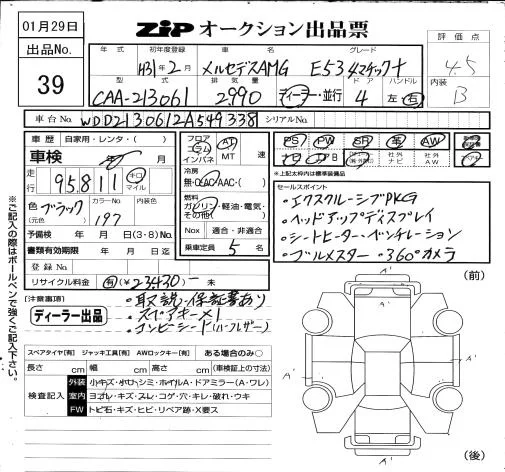 01月29日
ZIP オークション出品票
出品No.
39
評価点
4.5
内装
B
年式 初年度登録 車名 グレード
H31年2月 メルセデスAMG E53 4マチック+
型式 排気量 ドア ハンドル
CAA-213061 2990 ディーラー・並行 4 左・右
車台No. WDD2130612A549338 シリアルNo.
車歴 自家用・レンタ・( )
車検 年 月
走行 95,811 キロ マイル
色 ブラック
(元色)
カラーNo. 197
内装色
予備検 年 月 日(3・8)No.
書類有効期限 年 月 日
登録No.
リサイクル料金 有(¥ 23430-
フロア コラム インパネ AT MT 速
冷房 無・C・AC・AAC・( )
燃料 ガソリン・軽油・電気・その他( )
Nox 適合・非適合
乗車定員 5 名
PS PW SR 革 AW
社外ナビ 社外AW
※上記太枠内は標準装備品
セールスポイント
・エクスクルーシブPKG
・ヘッドアップディスプレイ
・シートヒーター・ベンチレーション
・ブルメスター・360°カメラ
【注意事項】
ディーラー出品
・取説・保証書あり
・スペアキー×1
・コンビシード(ハーフレザー)
スペアタイヤ【有】 ジャッキ工具【有】 AWロックキー【有】 ある場合のみ○
長さ cm 幅 cm 高さ cm (車検証上の寸法)
検査記入
外装 小キズ・小凹・シミ・ホイルA・ドアミラー(A・ワレ)
室内 ヨゴレ・キズ・スレ・コゲ・穴・キレ・破れ・ウキ
FW トビ石・キズ・ヒビ・リペア跡・X要ス
(前)
A'
A'
A'
A'
A'
(後)
※ご記入の際はボールペンで強くご記入下さい。